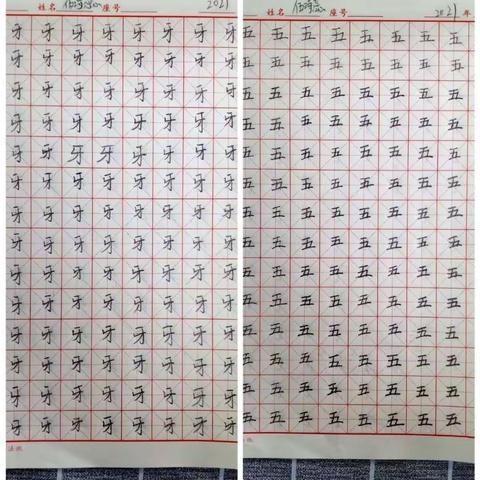 姓名 座号 2021
牙 牙 牙 牙 牙 牙 牙 牙
牙 牙 牙 牙 牙 牙 牙 牙
牙 牙 牙 牙 牙 牙 牙 牙
牙 牙 牙 牙 牙 牙 牙 牙
牙 牙 牙 牙 牙 牙 牙 牙
牙 牙 牙 牙 牙 牙 牙 牙
牙 牙 牙 牙 牙 牙 牙 牙
牙 牙 牙 牙 牙 牙 牙 牙
牙 牙 牙 牙 牙 牙 牙 牙
牙 牙 牙 牙 牙 牙 牙 牙
牙 牙 牙 牙 牙 牙 牙 牙
牙 牙 牙 牙 牙 牙 牙 牙
牙 牙 牙 牙 牙 牙 牙 牙
牙 牙 牙 牙 牙 牙 牙 牙
姓名 座号 2021年
五 五 五 五 五 五 五 五
五 五 五 五 五 五 五 五
五 五 五 五 五 五 五 五
五 五 五 五 五 五 五 五
五 五 五 五 五 五 五 五
五 五 五 五 五 五 五 五
五 五 五 五 五 五 五 五
五 五 五 五 五 五 五 五
五 五 五 五 五 五 五 五
五 五 五 五 五 五 五 五
五 五 五 五 五 五 五 五
五 五 五 五 五 五 五 五
五 五 五 五 五 五 五 五
五 五 五 五 五 五 五 五